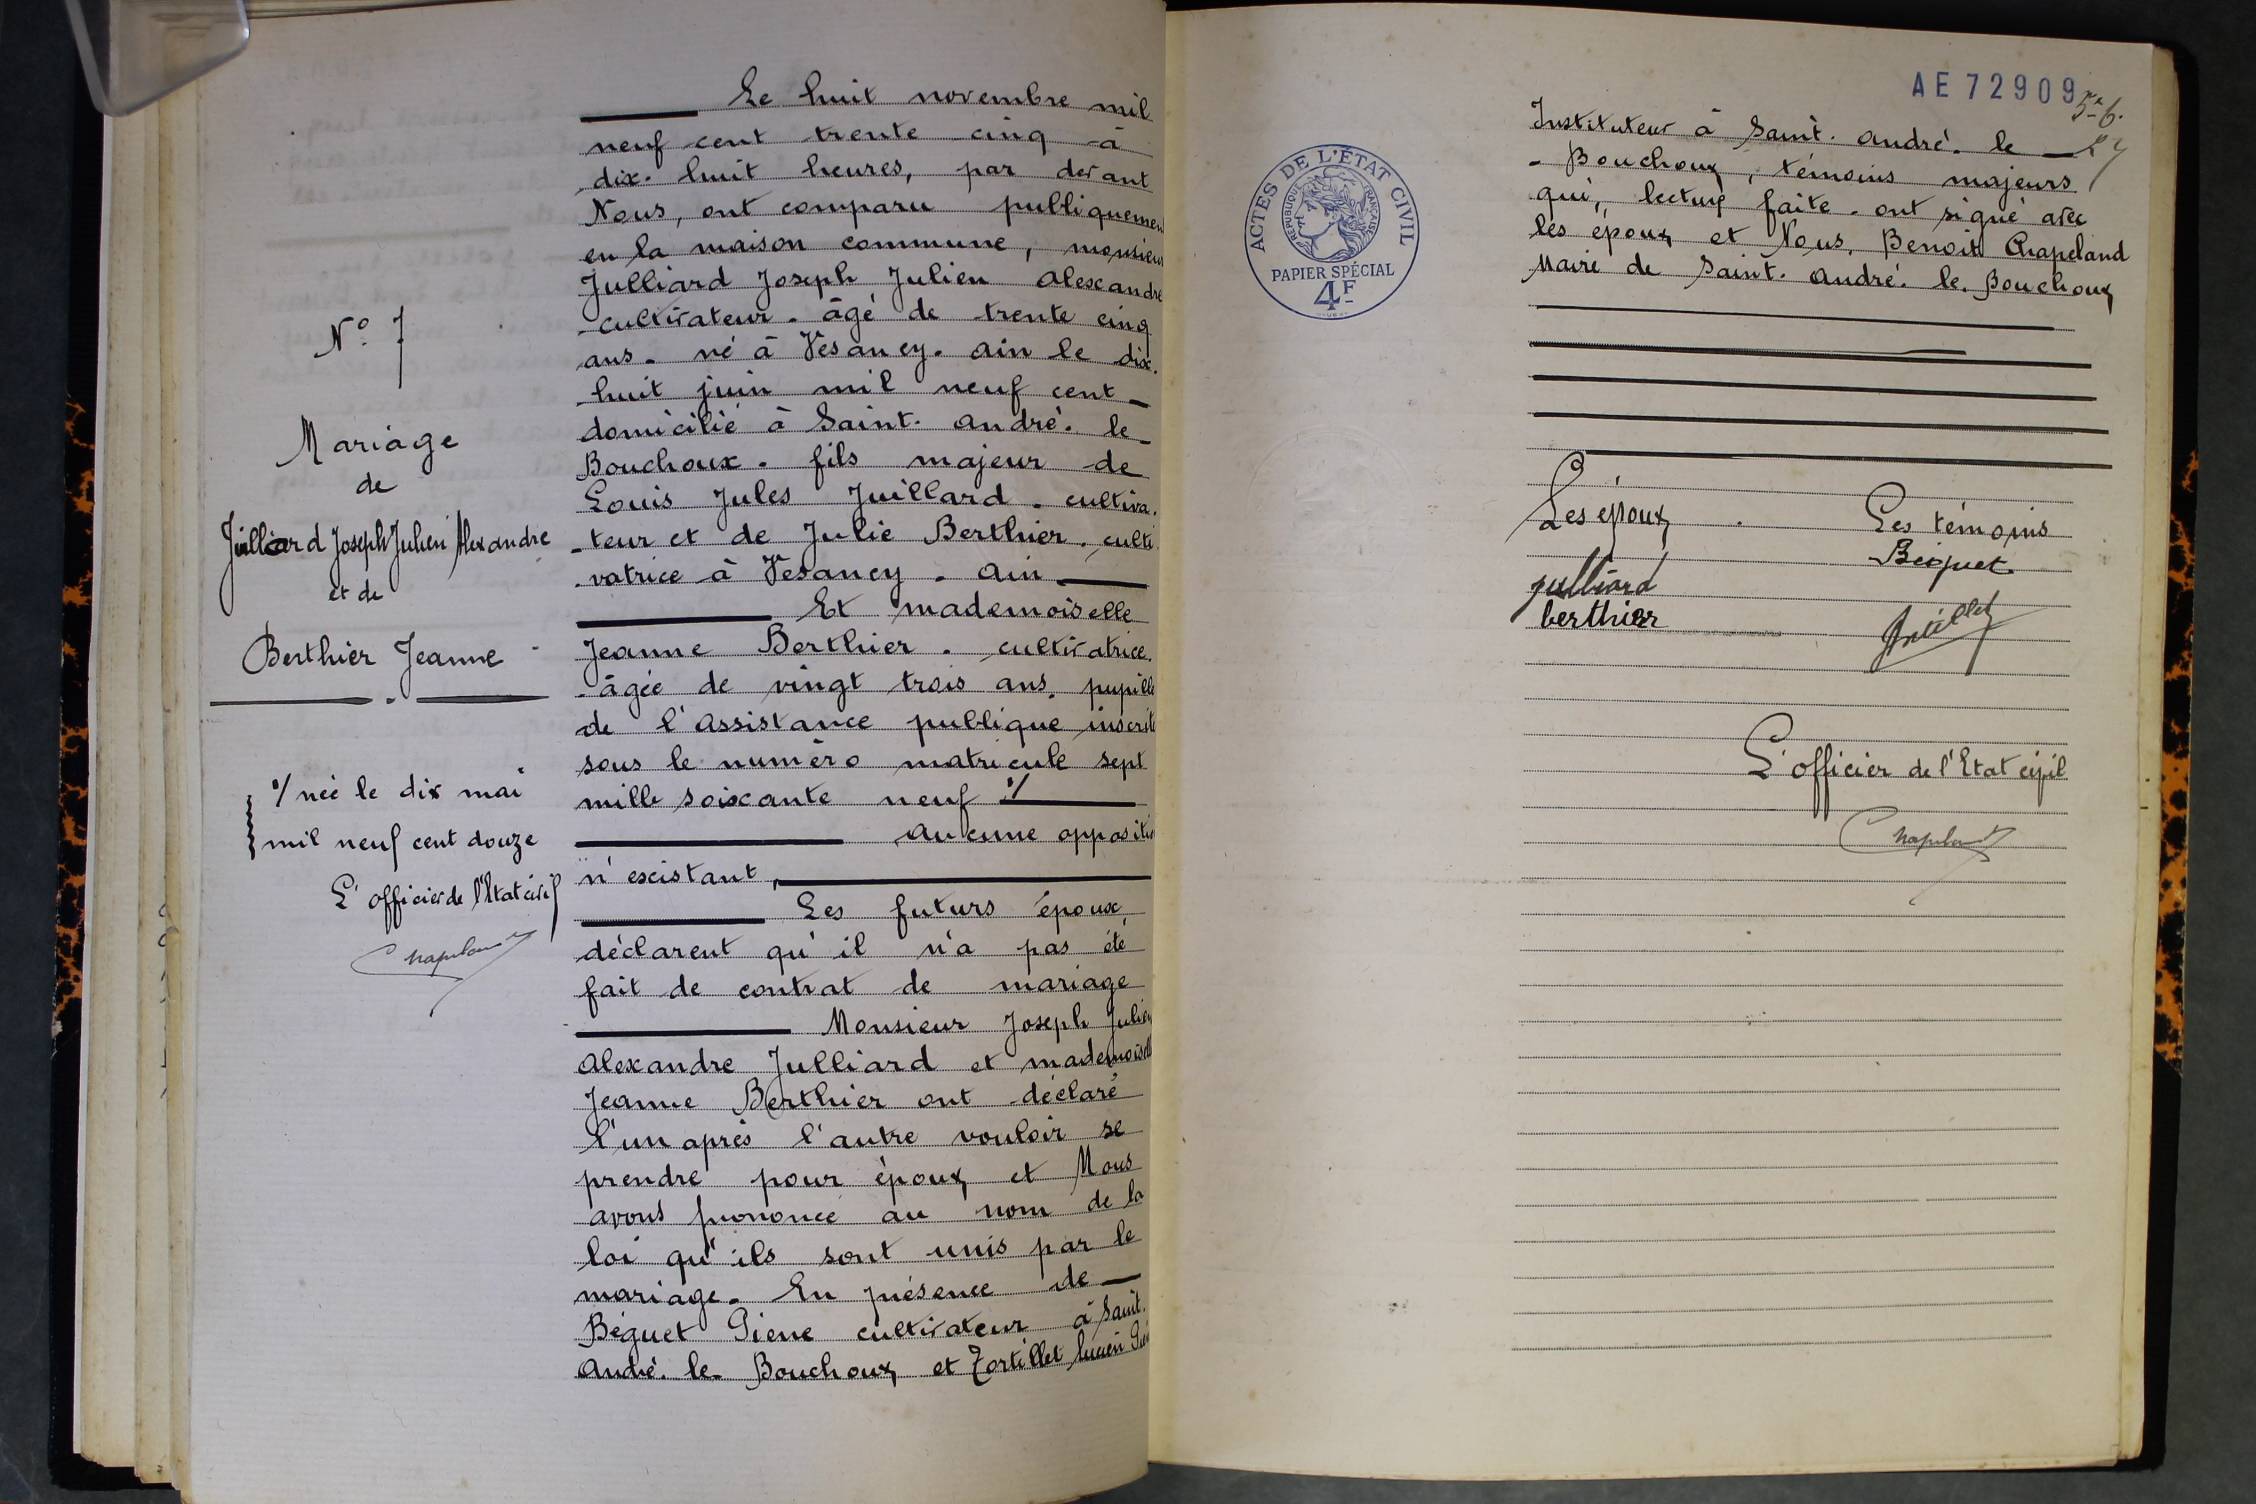 N° 7
Mariage
de
Juilliard Joseph Julien Alexandre
et de
Berthier Jeanne
°/ née le dix mai
mil neuf cent douze
L'officier de l'Etat civil
Chapeland
Le huit novembre mil
neuf cent trente cinq à
dix-huit heures, par devant
Nous, ont comparu publiquemen
en la maison commune, monsieur
Julliard Joseph Julien Alexandre
cultivateur. âgé de trente cinq
ans. né à Vesancy. Ain le dix.
huit juin mil neuf cent
domicilié à Saint. André. le
Bouchoux. fils majeur de
Louis Jules Juillard. cultiva.
teur et de Julie Berthier. culti
vatrice à Vesancy. Ain
Et mademoiselle
Jeanne Berthier. cultivatrice.
âgée de vingt trois ans. pupille
de l'Assistance publique inscrite
sous le numéro matricule sept
mille soixante neuf °/
aucune oppositio
n'existant,
Les futurs époux,
déclarent qu'il n'a pas été
fait de contrat de mariage
Monsieur Joseph Julien
Alexandre Julliard et mademoiselle
Jeanne Berthier ont déclaré
l'un après l'autre vouloir se
prendre pour époux et Nous
avons prononcé au nom de la
loi qu'ils sont unis par le
mariage. En présence de
Béguet Pierre cultivateur à Saint.
André. le. Bouchoux et Tortillet Lucien
AE 72909
Instituteur à Saint. André. le
Bouchoux, témoins majeurs
qui, lecture faite. ont signé avec
les époux et Nous, Benoit Chapeland
Maire de Saint. André. le. Bouchoux
Les époux
Les témoins
julliard
Béguet
berthier
L'officier de l'Etat civil
Chapeland
ACTES DE L'ÉTAT CIVIL
RÉPUBLIQUE FRANÇAISE
PAPIER SPÉCIAL
4F